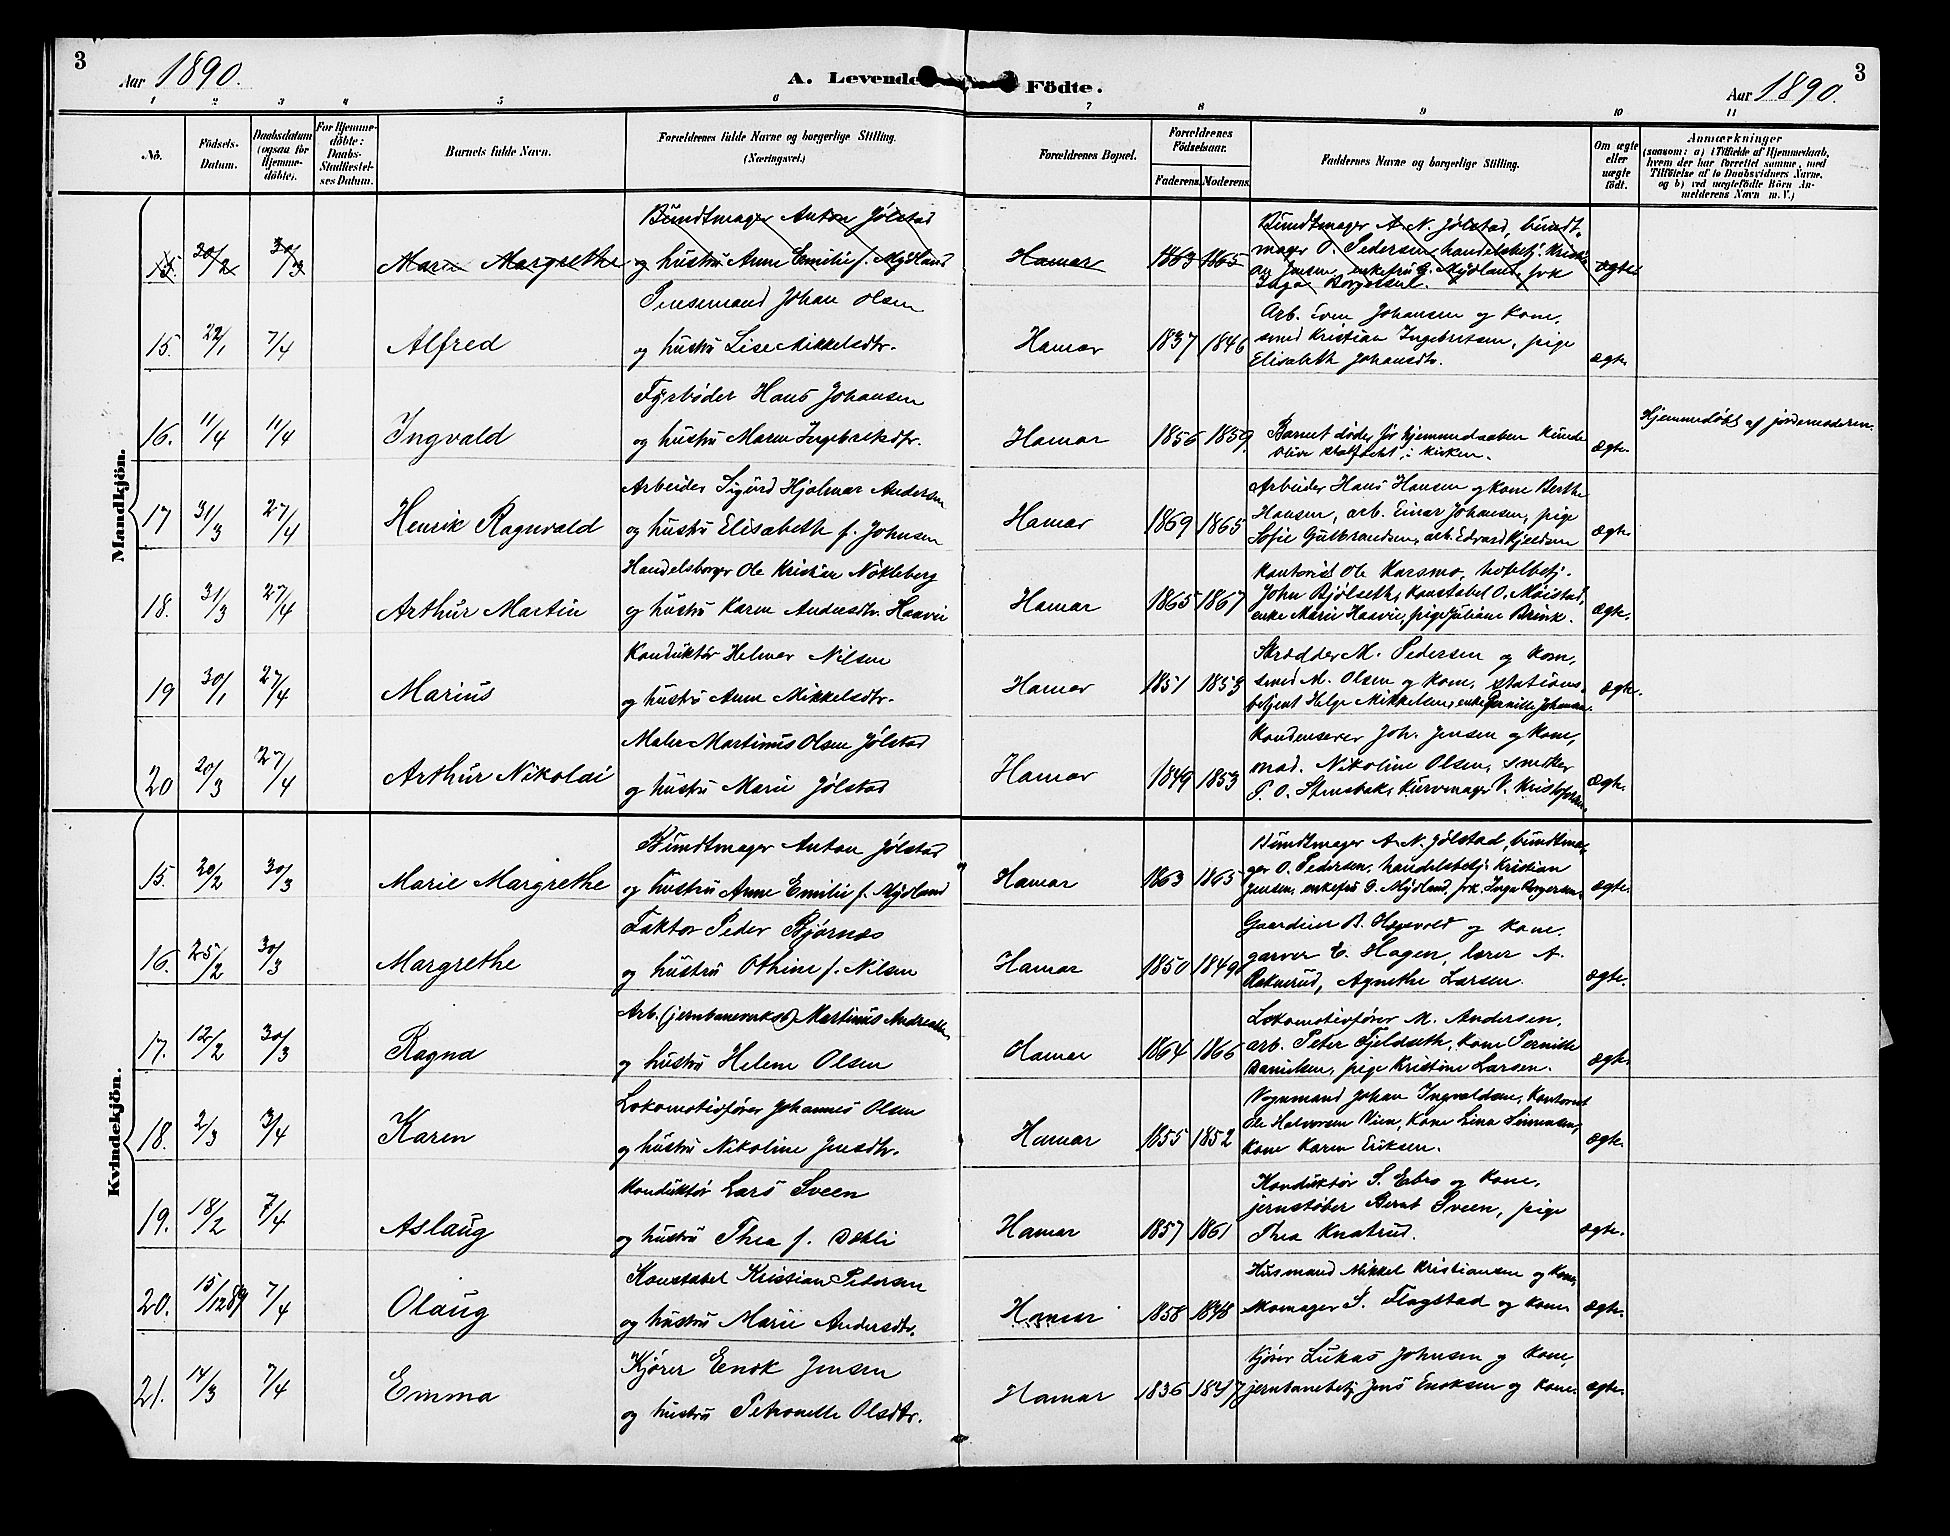 3
Aar 1890.
A. Levende Födte.
Aar 1890.
3
1 2 3 4 5 6 7 8 9 10 11
No.
Födsels-
Datum.
Daabsdatum
(ogsaa for
Hjemme-
döbte).
For Hjemme-
döbte:
Daabs-
Stadfæstel-
ses Datum.
Barnets fulde Navn.
Forældrenes fulde Navne og borgerlige Stilling.
(Næringsvei.)
Forældrenes Bopæl.
Forældrenes
Födselsaar.
Faderens. Moderens.
Faddernes Navne og borgerlige Stilling.
Om ægte
eller
uægte
født.
Anmærkninger
(saasom: a) i Tilfælde af Hjemmedaab,
hvem der har forrettet samme, med
Tilföielse af to Daabsvidners Navne,
og b) ved uægtefödte Börn An-
melderens Navn m. V.)
Mandkjön.
15 20/2 30/3 Marie Margrethe
Bundtmager Anton Jølstad
og hustru Anne Emilie f. Mydland
Hamar 1863 1865
Bundtmager A. N. Jølstad, bundt-
mager O. Pedersen, handelsbetj. Kristi-
an Jensen, enkefru G. Mydland, frk
Inga
ægte
15. 22/1 7/4 Alfred
Johan Olsen
og hustru Lise Mikkelsdtr.
Hamar 1837 1846
Arb. Even Johansen og kone,
smed Kristian Ingebretsen, pige
Elisabeth Johansdtr.
ægte
16. 11/4 11/4 Ingvald
Fyrbøder Hans Johansen
og hustru Maren Ingebretsdtr.
Hamar 1856 1859.
Barnet døde før hjemmedaaben kunde
blive stadfæstet i kirken.
ægte.
Hjemmedøbt af jordemoderen.
17 31/3 27/4 Henrik Ragnvald
Arbeider Sigurd Hjalmar Andersen
og hustru Elisabeth f. Johnsen
Hamar 1869 1865
Arbeider Hans Hansen og kone Berthe
Hansen, arb. Einar Johansen, pige
Sofie Gulbrandsen, arb. Edvard Kjeldsen
ægte.
18. 31/3 27/4 Arthur Martin
Handelsborger Ole Kristian Nökleberg
og hustru Karen Andersdtr. Haavie
Hamar 1865 1867
Kontorist Ole Karsmo, hotelbetj.
John Bjölseth, Konstabel O. Moistad,
enke Marie Haavie, pige Juliane Brink.
ægte.
19 30/1 27/4 Marius
Konduktør Helmer Nilsen
og hustru Anne Mikkelsdtr.
Hamar 1851 1853
Skrædder M. Pedersen og kone,
smed M. Olsen og kone, stations-
betjent Helge Mikkelsen, enke Pernille Johansen.
ægte.
20 20/3 27/4 Arthur Nikolai
Maler Martinus Olsen Jølstad
og hustru Marie Jølstad
Hamar 1849 1853
Kondenserer Joh. Jensen og kone,
mad. Nikoline Olsen, snedker
P. O. Stensbak, Kurvmager V. Kristofersen
ægte.
Kvindekjön.
15. 20/2 30/3 Marie Margrethe
Bundtmager Anton Jølstad
og hustru Anne Emilie f. Mydland
Hamar 1863 1865
Bundtmager A. N. Jølstad, bundtma-
ger O. Pedersen, handelsbetj. Kristian
Jensen, enkefru G. Mydland, frk. Inga Borgersen.
ægte.
16. 25/2 30/3 Margrethe
Faktor Peder Bjørnæs
og hustru Othine f. Nilsen
Hamar 1850 1849
Gaardeier B. Hagevold og kone,
garver E. Hagen, lærer A.
Ratnerud, Agnethe Larsen.
ægte.
17. 12/2 30/3 Ragna
Arb. (jernbaneverkst) Martinus Andreassen
og hustru Helene Olsen
Hamar 1864 1866
Lokomotivfører M. Andersen,
arb. Peter Fjeldseth, kone Pernille
Danielsen, pige Kristine Larsen.
ægte.
18. 2/3 3/4 Karen
Lokomotivfører Johannes Olsen
og hustru Nikoline Jensdtr.
Hamar 1855 1852
Vognmand Johan Ingvaldsen, Kontorist
Ole Halvorsen Vien, kone Lina Simensen,
kone Karen Eriksen.
ægte.
19. 18/2 7/4 Aslaug
Konduktør Lars Sveen
og hustru Thea f. Dæhli
Hamar 1857 1861
Konduktør S. Ebro og kone,
jernstøber Bernt Sveen, pige
Thea Knatrud.
ægte.
20. 15/12 89 7/4 Olaug
Konstabel Kristian Pedersen
og hustru Marie Andersdtr.
Hamar 1858 1848
Husmand Mikkel Kristiansen og kone,
skomager S. Flagstad og kone
ægte.
21. 14/3 7/4 Emma
Kjører Enok Jensen
og hustru Petronelle Olsdtr.
Hamar 1836 1847
kjører Lukas Johnsen og kone,
jernbanebetj. Jens Enoksen og kone.
ægte.